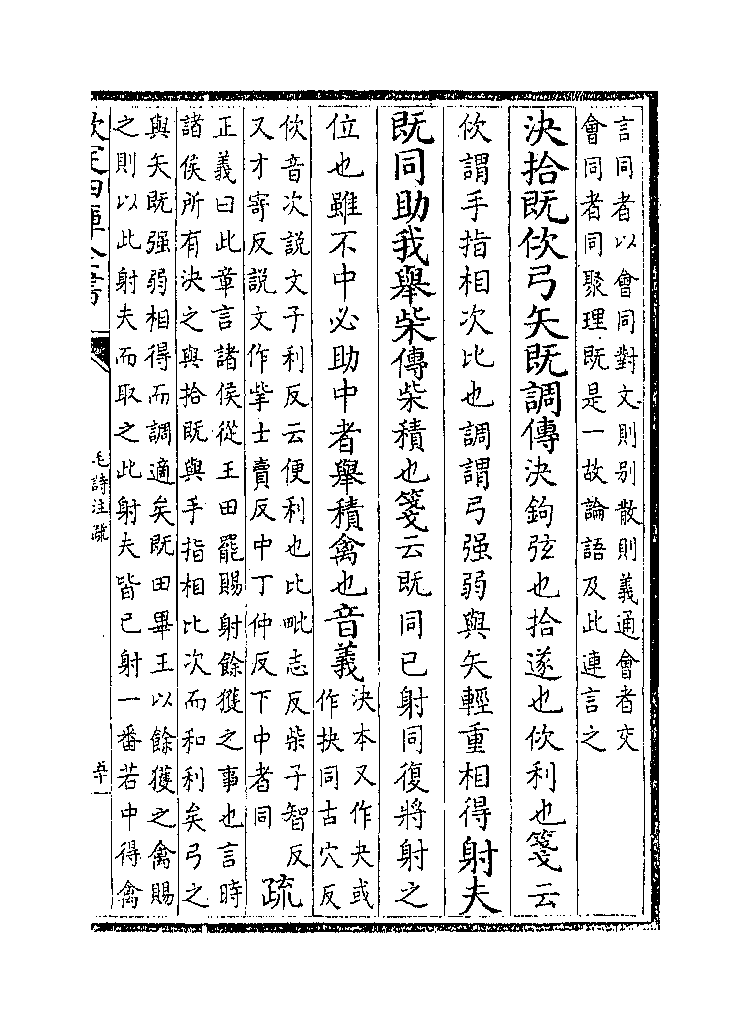 言同者以會同對文則别散則義通會者交
會同者同聚理既是一故論語及此連言之
決拾既佽弓矢既調傳決鉤弦也拾遂也佽利也箋云
佽謂手指相次比也調謂弓强弱與矢輕重相得射夫
既同助我舉柴傳柴積也箋云既同已射同復將射之
位也雖不中必助中者舉積禽也音義
決本又作夬或
作抉同古穴反
佽音次説文子利反云便利也比毗志反柴子智反
又才寄反説文作㧘士賣反中丁仲反下中者同
疏
正義曰此章言諸侯從王田罷賜射餘獲之事也言時
諸侯所有決之與拾既與手指相比次而和利矣弓之
與矢既强弱相得而調適矣既田畢王以餘獲之禽賜
之則以此射夫而取之此射夫皆已射一番若中得禽
欽定四庫全書
毛詩注疏